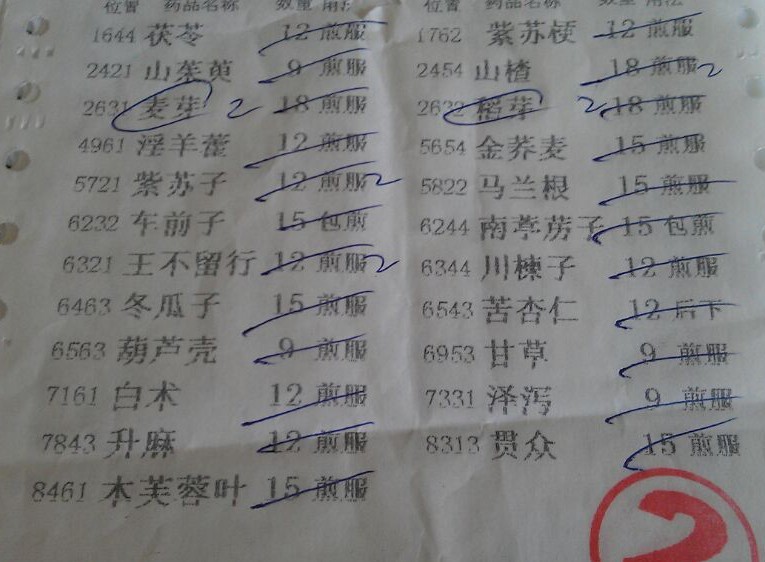 位置 药品名称 数量 用法 位置 药品名称 数量 用法
1644 茯苓 12 煎服 1762 紫苏梗 12 煎服
2421 山茱萸 9 煎服 2454 山楂 18 煎服 2
2631 麦芽 2 18 煎服 2632 稻芽 2 18 煎服
4961 淫羊藿 12 煎服 5654 金荞麦 15 煎服
5721 紫苏子 12 煎服 2 5822 马兰根 15 煎服
6232 车前子 15 包煎 6244 南葶苈子 15 包煎
6321 王不留行 12 煎服 2 6344 川楝子 12 煎服
6463 冬瓜子 15 煎服 6543 苦杏仁 12 后下
6563 葫芦壳 9 煎服 6953 甘草 9 煎服
7161 白术 12 煎服 7331 泽泻 9 煎服
7843 升麻 12 煎服 8313 贯众 15 煎服
8461 木芙蓉叶 15 煎服
2